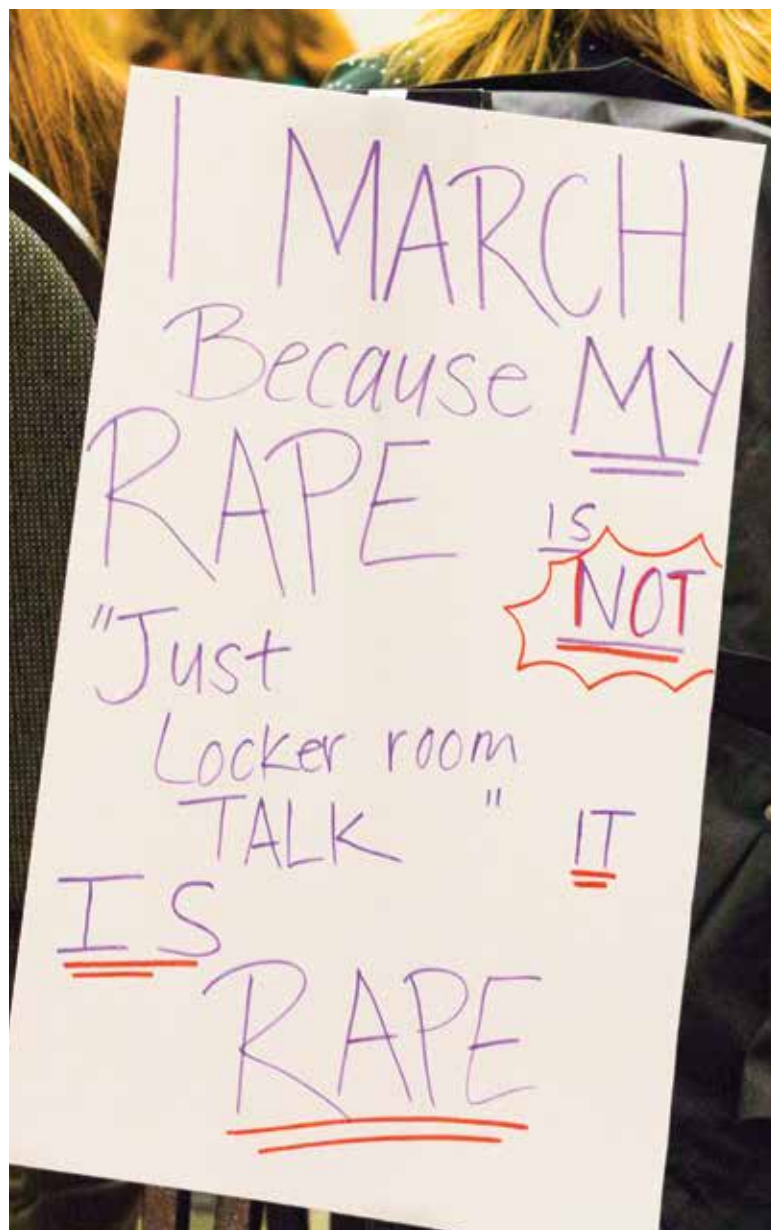 I MARCH
Because MY
RAPE is
NOT
"Just
Locker room
TALK" IT
IS
RAPE